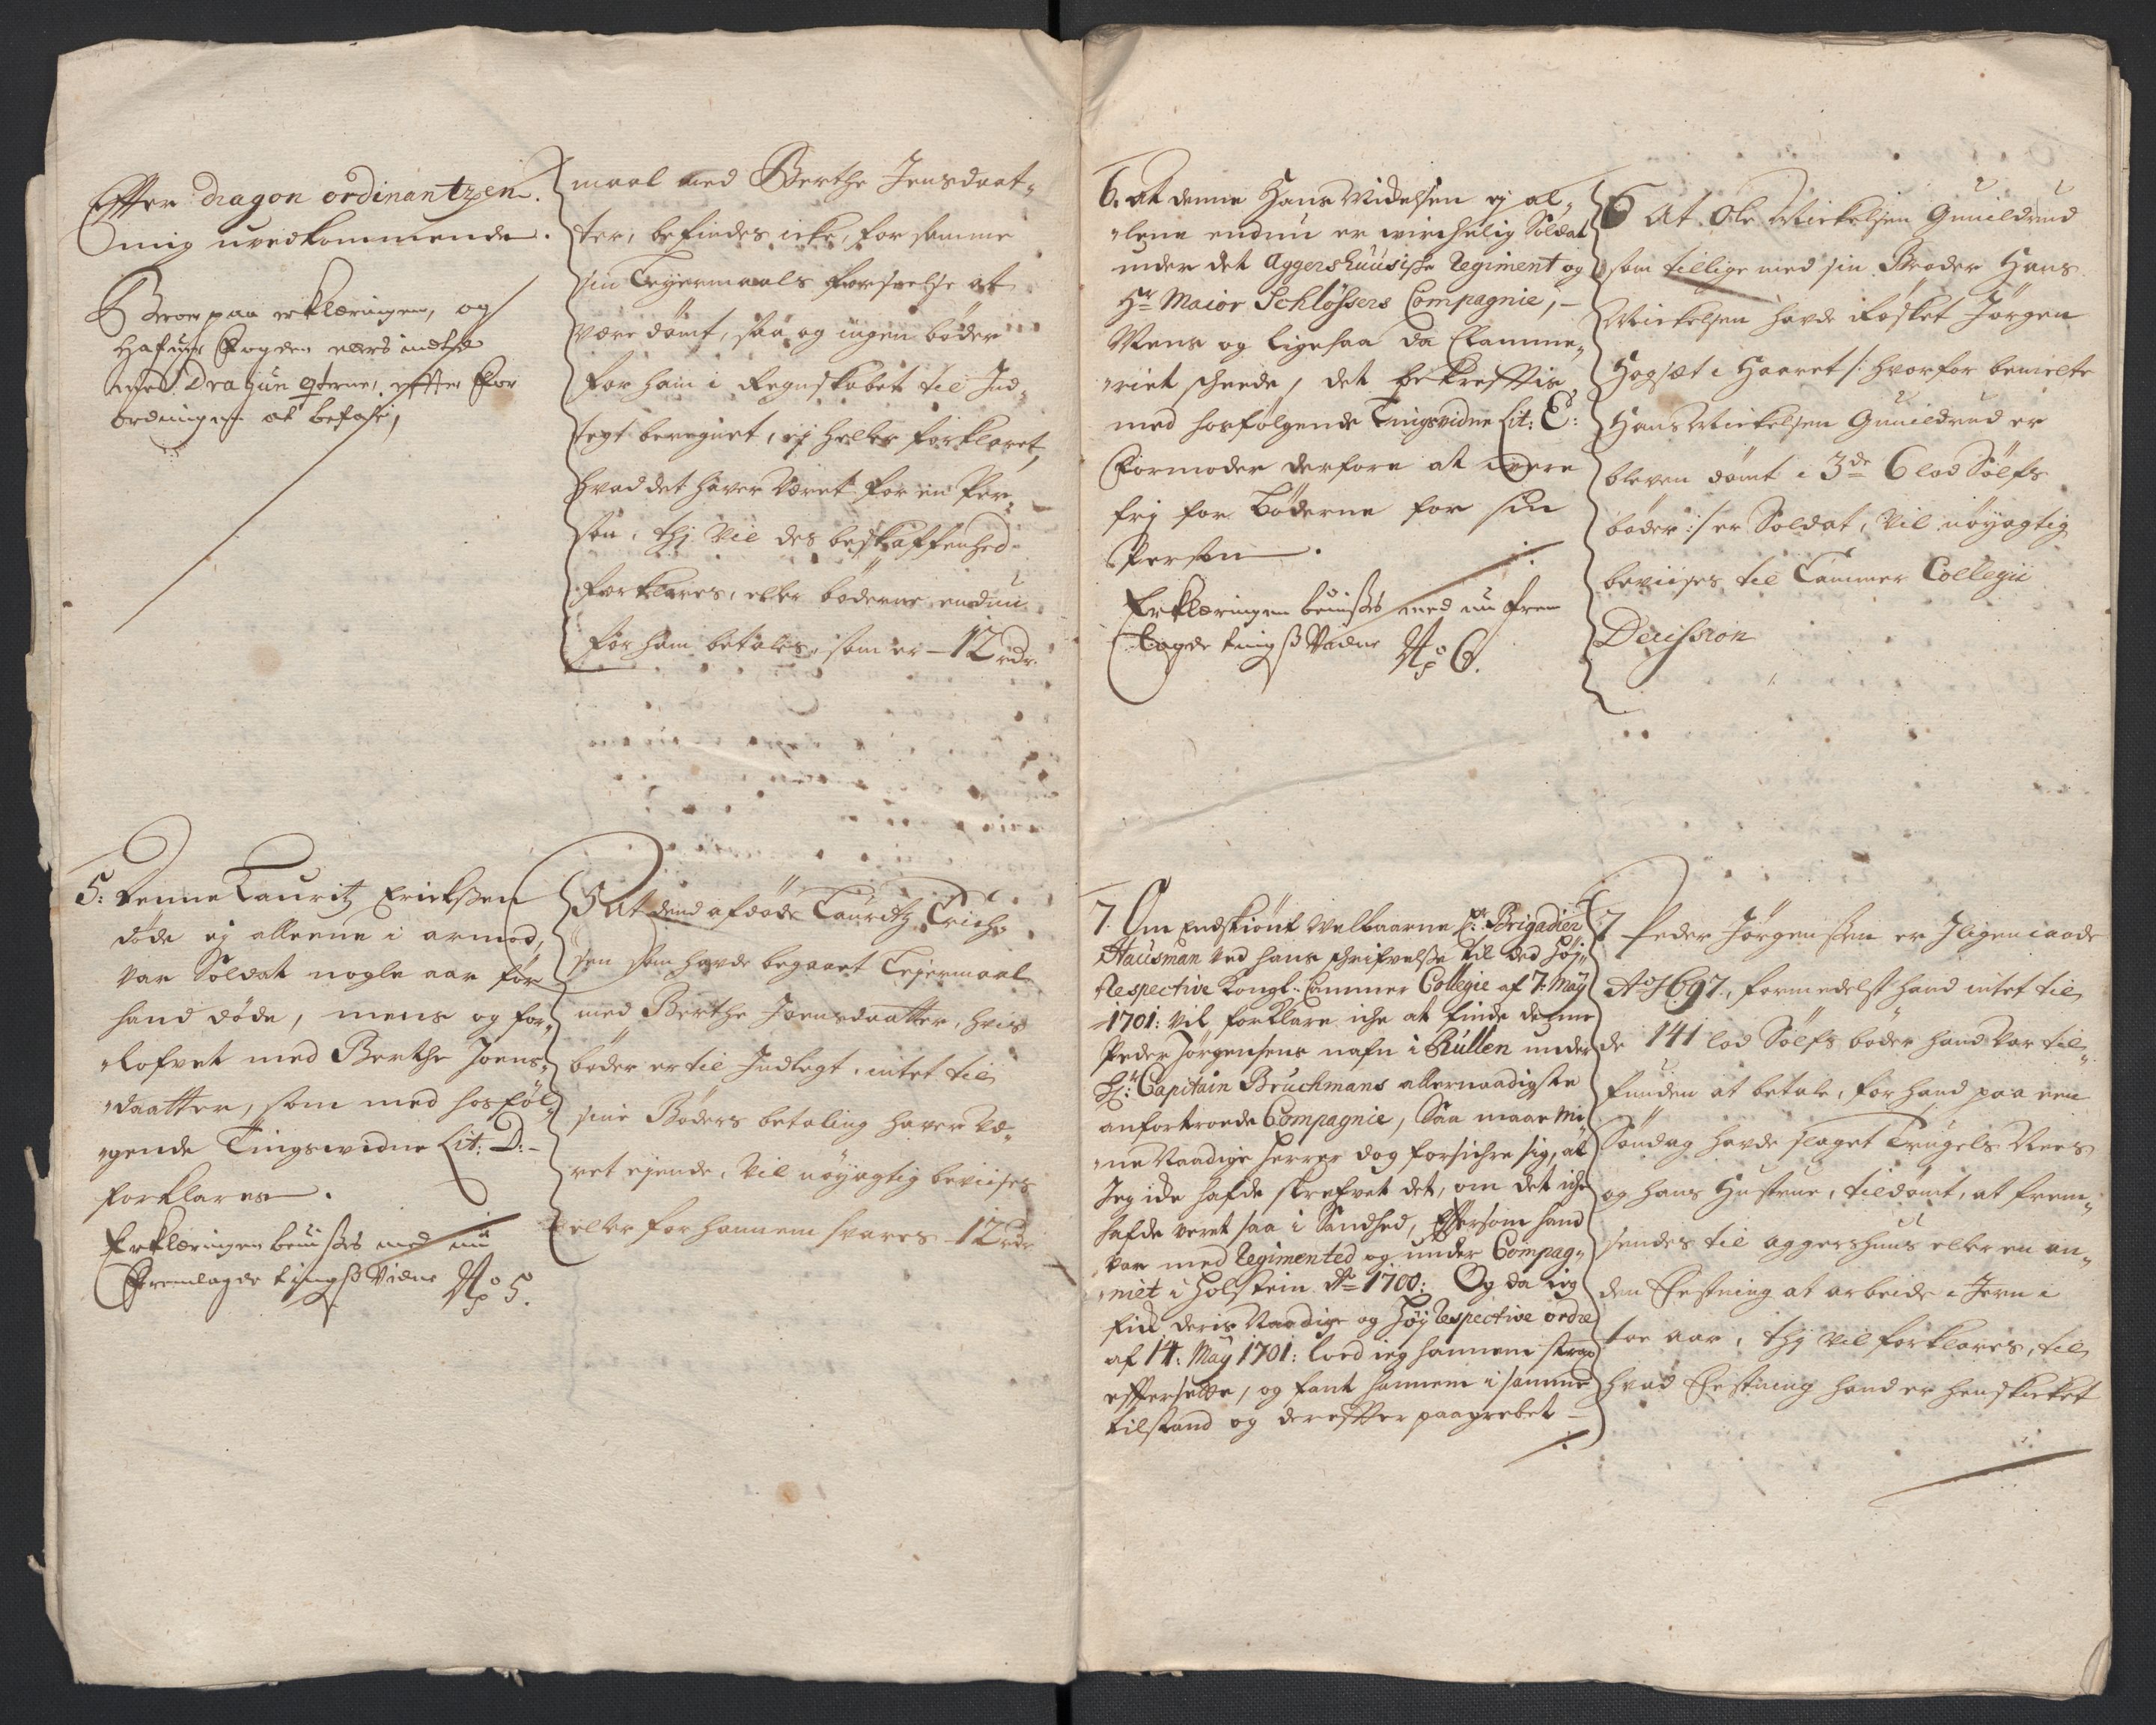 Effter dragon ordinantzen.
mig uvedkommende.
Beroer paa erklæringen, og
hafuer Fogden
med Dragun effter For
ordningen at befatte,
maal med Berthe Jensdaat-
ter, befindes icke, for samme
sin Leyermaals forseelse at
være dömt, saa og ingen böder
for ham i Regnskabet til Ind-
tegt beregnet, ej heller forklaret,
hvad det haver været for en Per-
son, thj vil des beskaffenhed
forklares, eller böderne endnu
for ham betales, som er - 12 rdr.
5: Denne Lauritz Erickssen
döde ej alleene i armod,
var Soldat nogle aar för
hand döde, mens og for-
lofvet med Berthe Joens-
daatter, som med hosföl-
gende Tingsvidne Lit: D: -
forklares.
Erklæringen beuisses med nu
fremlagde tingsVidne No 5.
5 At dend afdöde Lauritz Erich-
sen som havde begaaet Lejermaal
med Berthe Joensdaatter, hvis
böder er til Indtegt, intet til
sine Böders betaling haver væ-
ret ejende, Vil nöyagtig beviises
eller for hannem svares - 12 rdr
6. At denne Hans Mickelsen ej al-
lene endnu er wirchelig Soldat
under det Aggershuusiske Regiment og
Hr Maior Schlössers Compagnie, -
Mens og ligesaa da Klamme-
riet scheede, det bekrefftis
med hosfölgende Tingsvidne Lit: E:
Formoder derfore at were
frj for Böderne for sin
Person.
Erklæringen beuisses med nu frem
lagde tingsVidne No 6.
6 At Ole Mickelsen Guuildrud
som tillige med sin Broder Hans
Mickelsen havde Rösket Jörgen
Hogset i Haaret /: hvorfor bemelte
Hans Mickelsen Guuildrud er
bleven dömt i 3de 6 lod Sölfs
böder :/ er Soldat, Vil nöyagtig
beviises til Cammer Collegii
Decission
7. Om Endskiönt Velbaarne Hr: Brigadier
Hausman ved hans schrifvelse til Ded Höj-
Respective Kongl: Cammer Collegie af 7: May
1701: vil forklare iche at finde denne
Peder Jörgensens nafn i Rullen under
Hr: Capitain Bruchmans allernaadigste
anfortroede Compagnie, Saa maae Mi-
ne Naadige Herrer dog forsichre sig, at
Jeg ide hafde skrefvet det, om det iche
hafde veret saa i Sandhed, Effersom hand
var med Regimented og under Compag-
niet i Holstein Ao 1700: Og da ieg
fick deris Naadige og Höj Respective ordre
af 14: May 1701: loed ieg hannem strax
efftersette, og fant hannem i samme
tilstand og dereffter paagrebet -
7 Peder Jörgenssen er Iligemaade
Ao 1697, formedelst hand intet til
de 141 lod Sölfs böder hand var til-
funden at betale, for hand paa een
Söndag havde slaget Trugels Næes
og hans Hustrue, tildömt, at frem-
sendes til Aggershuus eller en an-
den Festning at arbeide i Jern i
toe aar, thj vil forklares, til
hvad Festning hand er henskicket